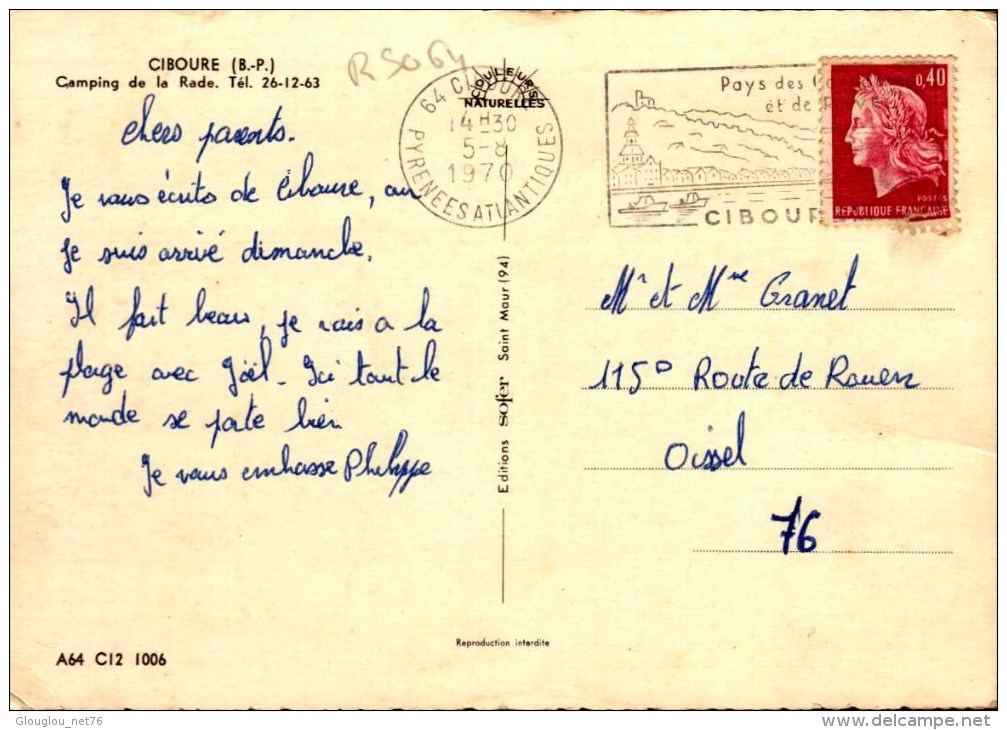 CIBOURE (B.-P.)
Camping de la Rade. Tél. 26-12-63
R 5064
COULEURS
NATURELLES
64 CIBOURE
14H30
5-8
1970
PYRENEES ATLANTIQUES
Pays des
et de
CIBOUR
0,40
POSTES
REPUBLIQUE FRANÇAISE
chers parents.
Je vous écrits de Ciboure, ou
Je suis arrivé dimanche.
Il fait beau, je vais a la
plage avec Joël. Ici tout le
monde se porte bien
Je vous embrasse Philippe
Editions sofer Saint Maur (94)
Mr et Mme Granet
115D Route de Rouen
Oissel
76
Reproduction interdite
A64 C12 1006
Glouglou_net76
www.delcampe.net